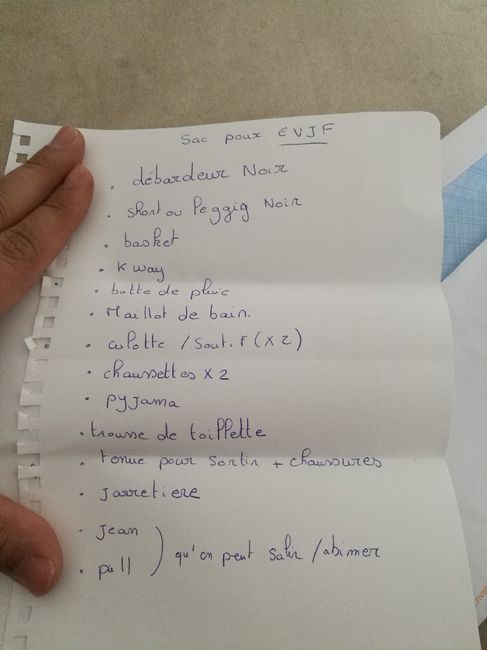 Sac pour EVJF
. débardeur Noir
. short ou leggig Noir
. basket
. K way
. botte de pluie
. Maillot de bain.
. culotte / Sout. F (x 2)
. chaussettes x 2
. pyjama
. trousse de toillette
. tenue pour Sortir + chaussures
. Jarretiere
. Jean
. pull ) qu'on peut Salir / abimer